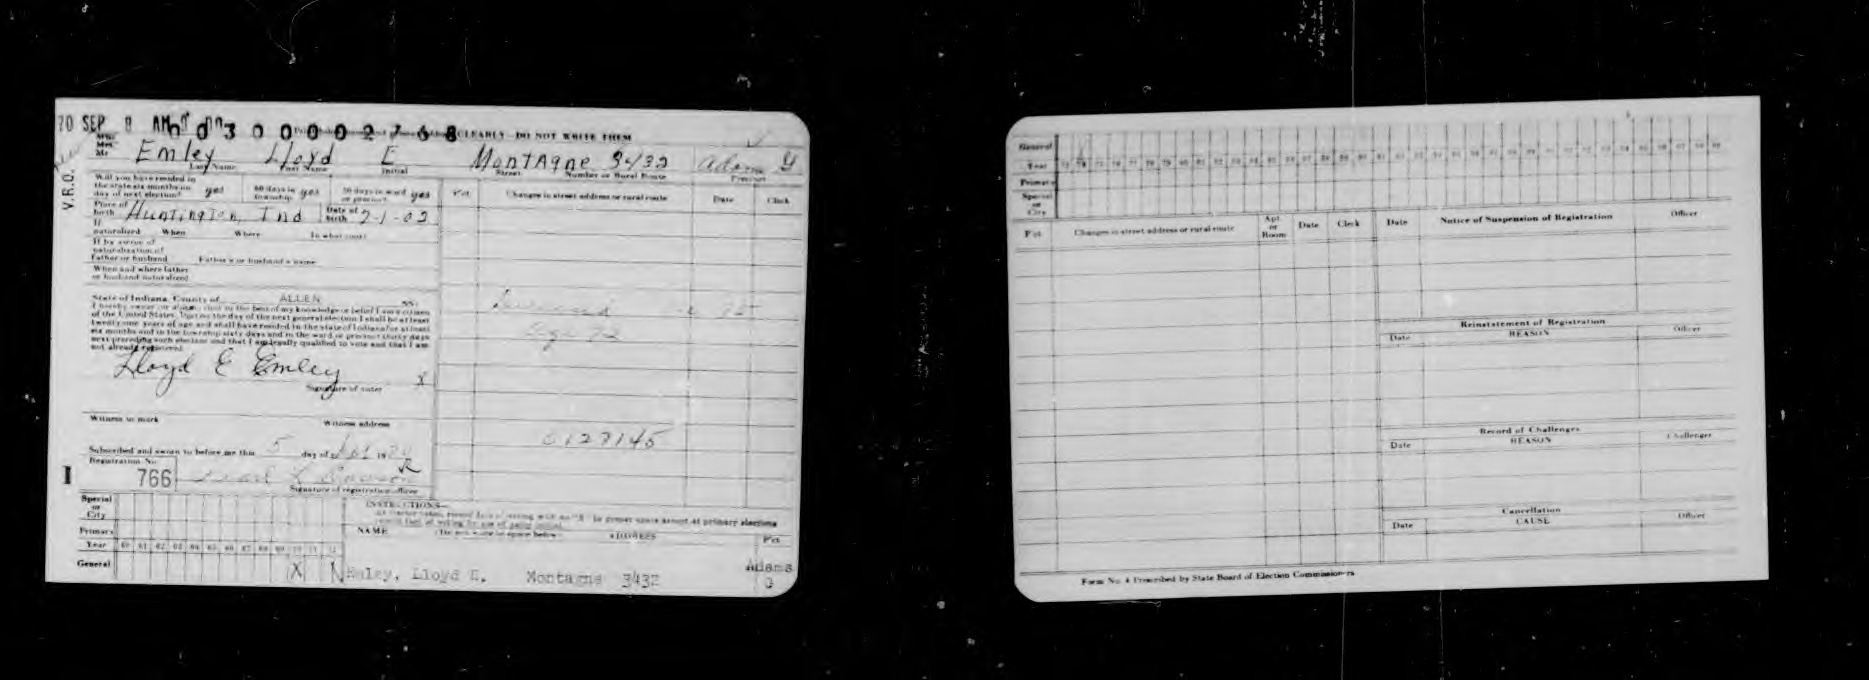 70 SEP 8 AM
0 0 3 0 0 0 0 2 7 6 8 CLEARLY - DO NOT WRITE THEM
V.R.O.
Miss
Mrs.
Mr. Emley Lloyd E Montagne 3432 Adams G
Last Name First Name Initial Street Number or Rural Route Precinct
Will you have resided in
the state six months on
day of next election? yes
60 days in
township yes
30 days in ward
or precinct yes
Pct. Changes in street address or rural route Date Clerk
Place of
birth Huntington, Ind
Date of
birth 2-1-02
If
naturalized When Where In what court
If by virtue of
naturalization of
Father or husband Father's or husband's name
When and where father
or husband naturalized
State of Indiana, County of ALLEN SS:
I hereby swear (or affirm) that to the best of my knowledge or belief I am a citizen
of the United States. That on the day of the next general election I shall be at least
twenty-one years of age and shall have resided in the state of Indiana for at least
six months and in the township sixty days and in the ward or precinct thirty days
next preceding such election and that I am legally qualified to vote and that I am
not already registered.
Lloyd E Emley X
Signature of voter
72
0128145
Witness to mark Witness address
Subscribed and sworn to before me this 5 day of 19
Registration No.
I 766
Signature of registration officer
Special
or
City
Primary
Year 60 61 62 63 64 65 66 67 68 69 70 71 72
General X X
INSTRUCTIONS—
NAME (Do not write in space below) ADDRESS Pct.
Emley, Lloyd E. Montagne 3432 Adams
G
General
Year 73 74 75 76 77 78 79 80 81 82 83 84 85 86 87 88 89 90 91 92 93 94 95 96 97 98 99
Primary
Special
or
City
Pct. Changes in street address or rural route Apt.
or
Room Date Clerk Date Notice of Suspension of Registration Officer
Reinstatement of Registration
Date REASON Officer
Record of Challenges
Date REASON Challenger
Cancellation
Date CAUSE Officer
Form No. 4 Prescribed by State Board of Election Commissioners